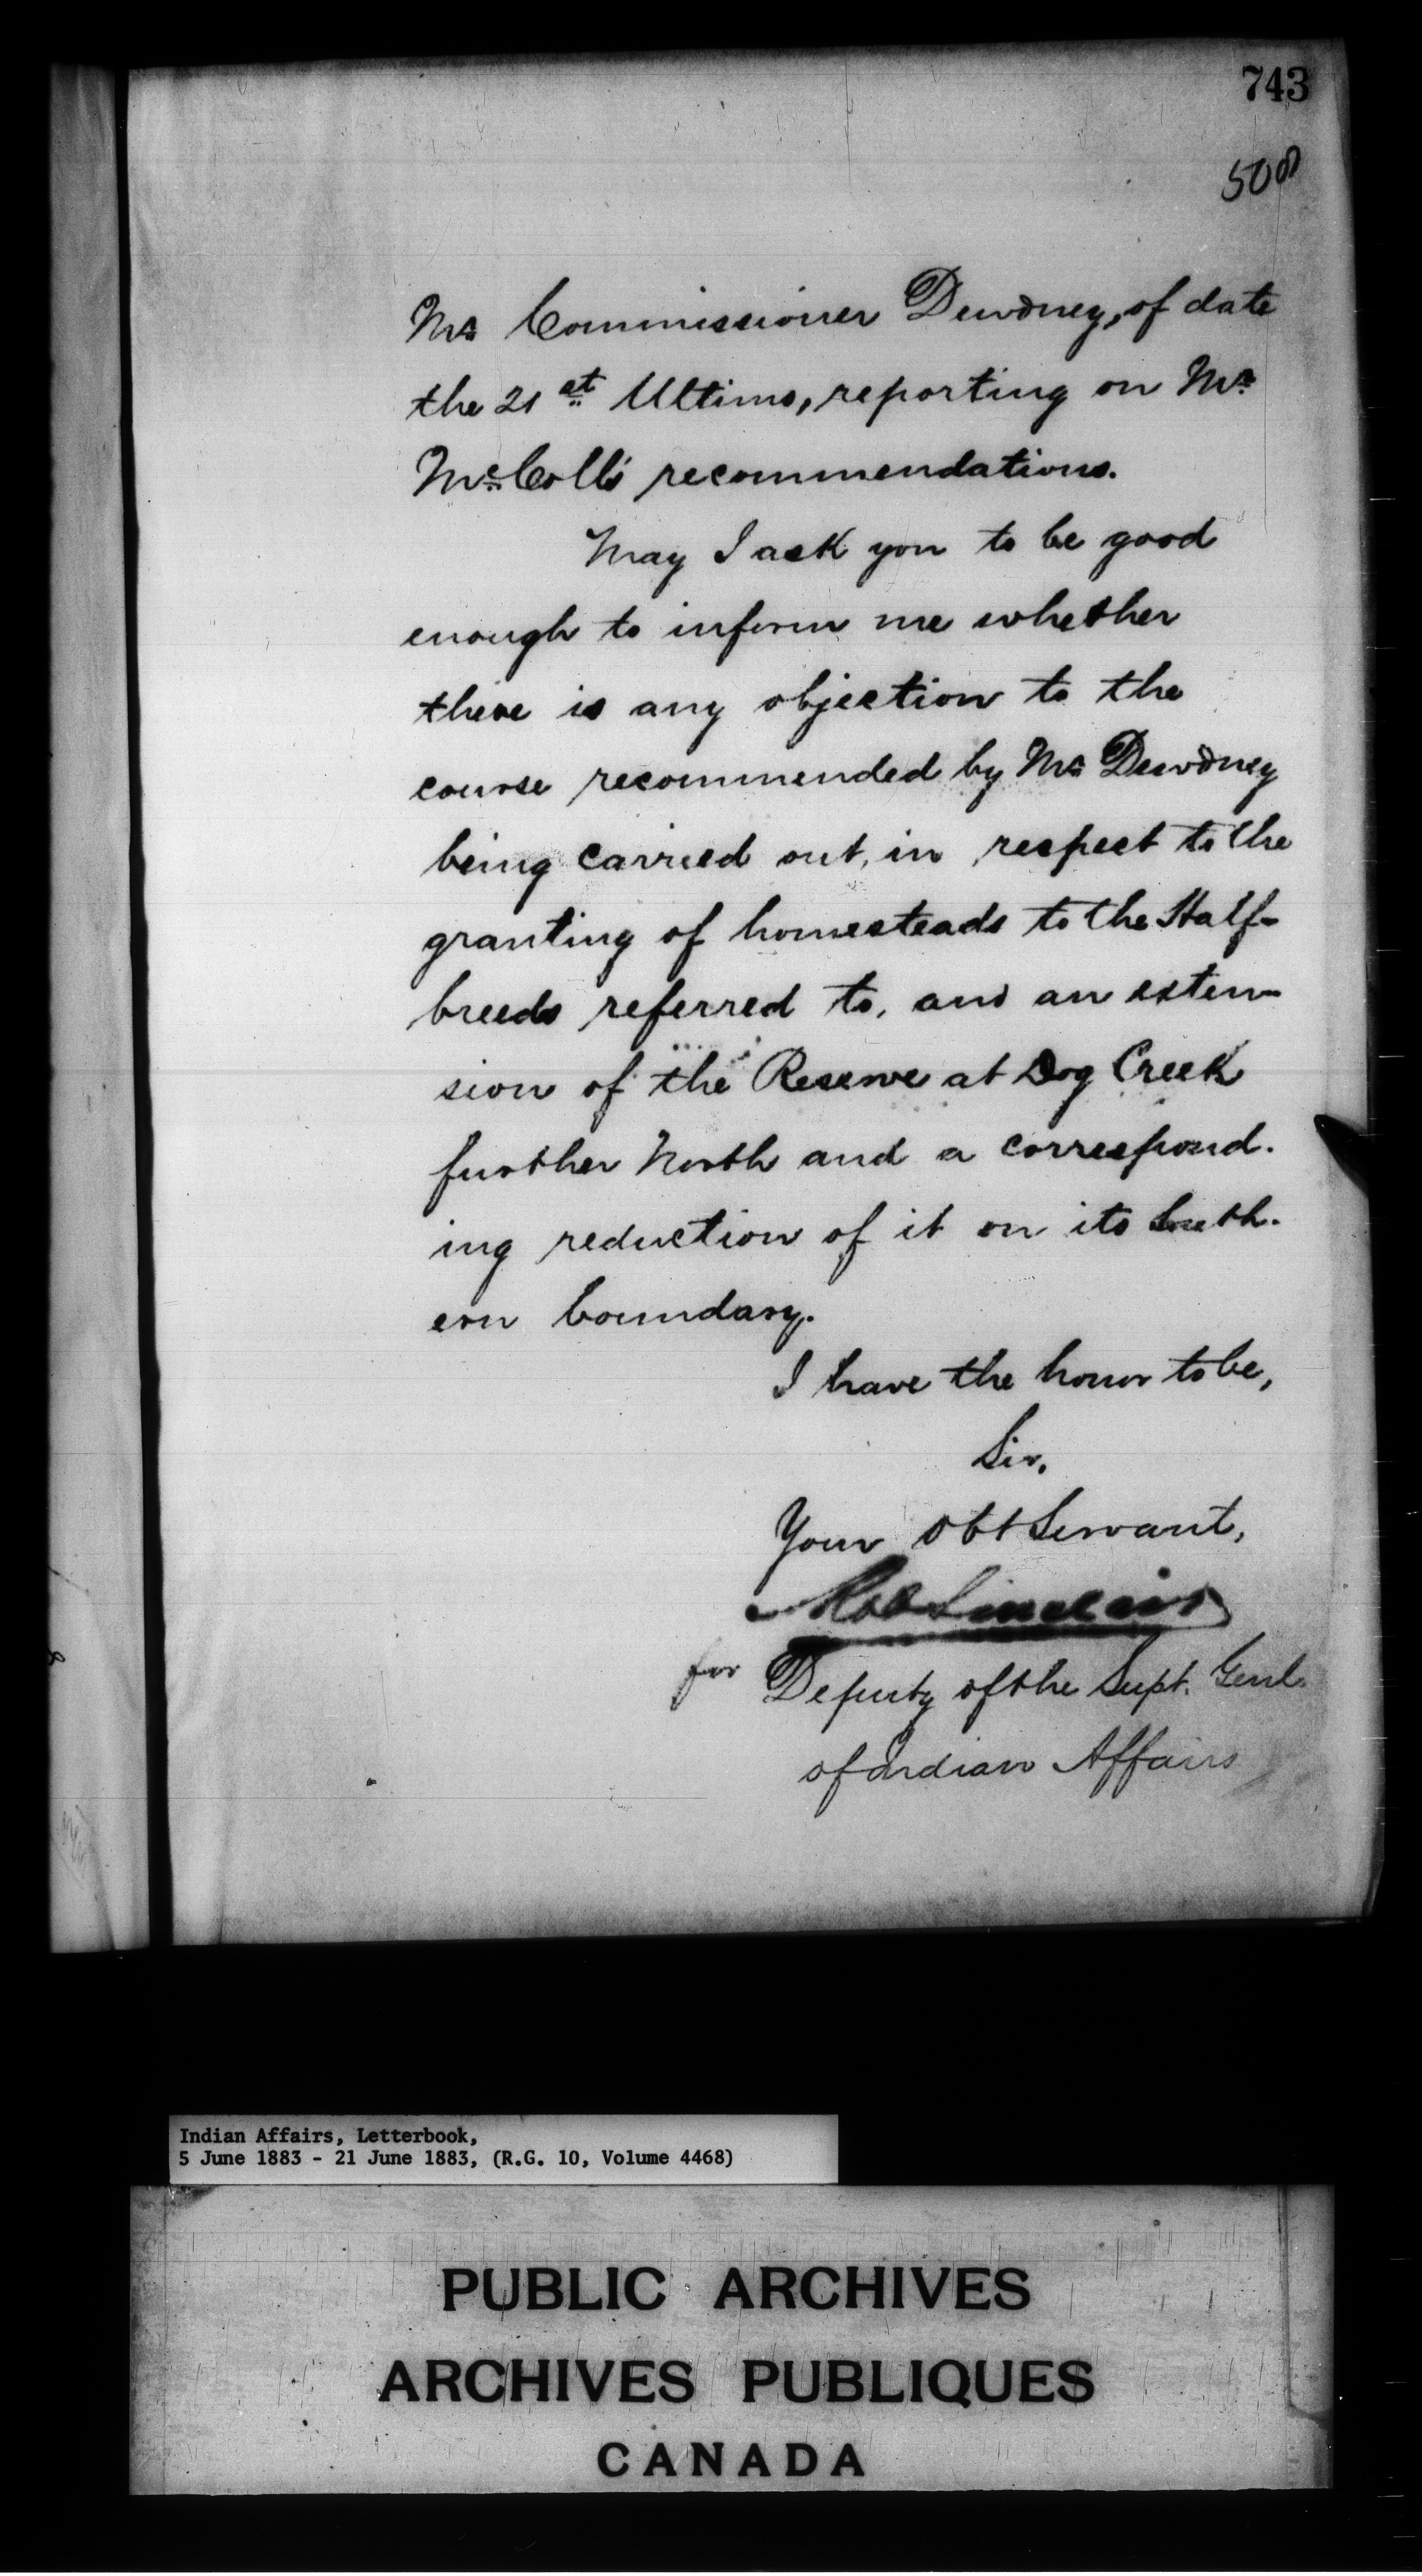 743
508
Mr Commissioner Dewdney, of date
the 21st Ultimo, reporting on Mr
McColl's recommendations.
May I ask you to be good
enough to inform me whether
there is any objection to the
course recommended by Mr Dewdney
being carried out, in respect to the
granting of homesteads to the Half-
breeds referred to, and an exten-
sion of the Reserve at Dog Creek
further North and a correspond-
ing reduction of it on its South-
ern boundary.
I have the honor to be,
Sir,
Your Obt Servant,
Rob Sinclair
for Deputy of the Supt. Genl.
of Indian Affairs
Indian Affairs, Letterbook,
5 June 1883 - 21 June 1883, (R.G. 10, Volume 4468)
PUBLIC ARCHIVES
ARCHIVES PUBLIQUES
CANADA